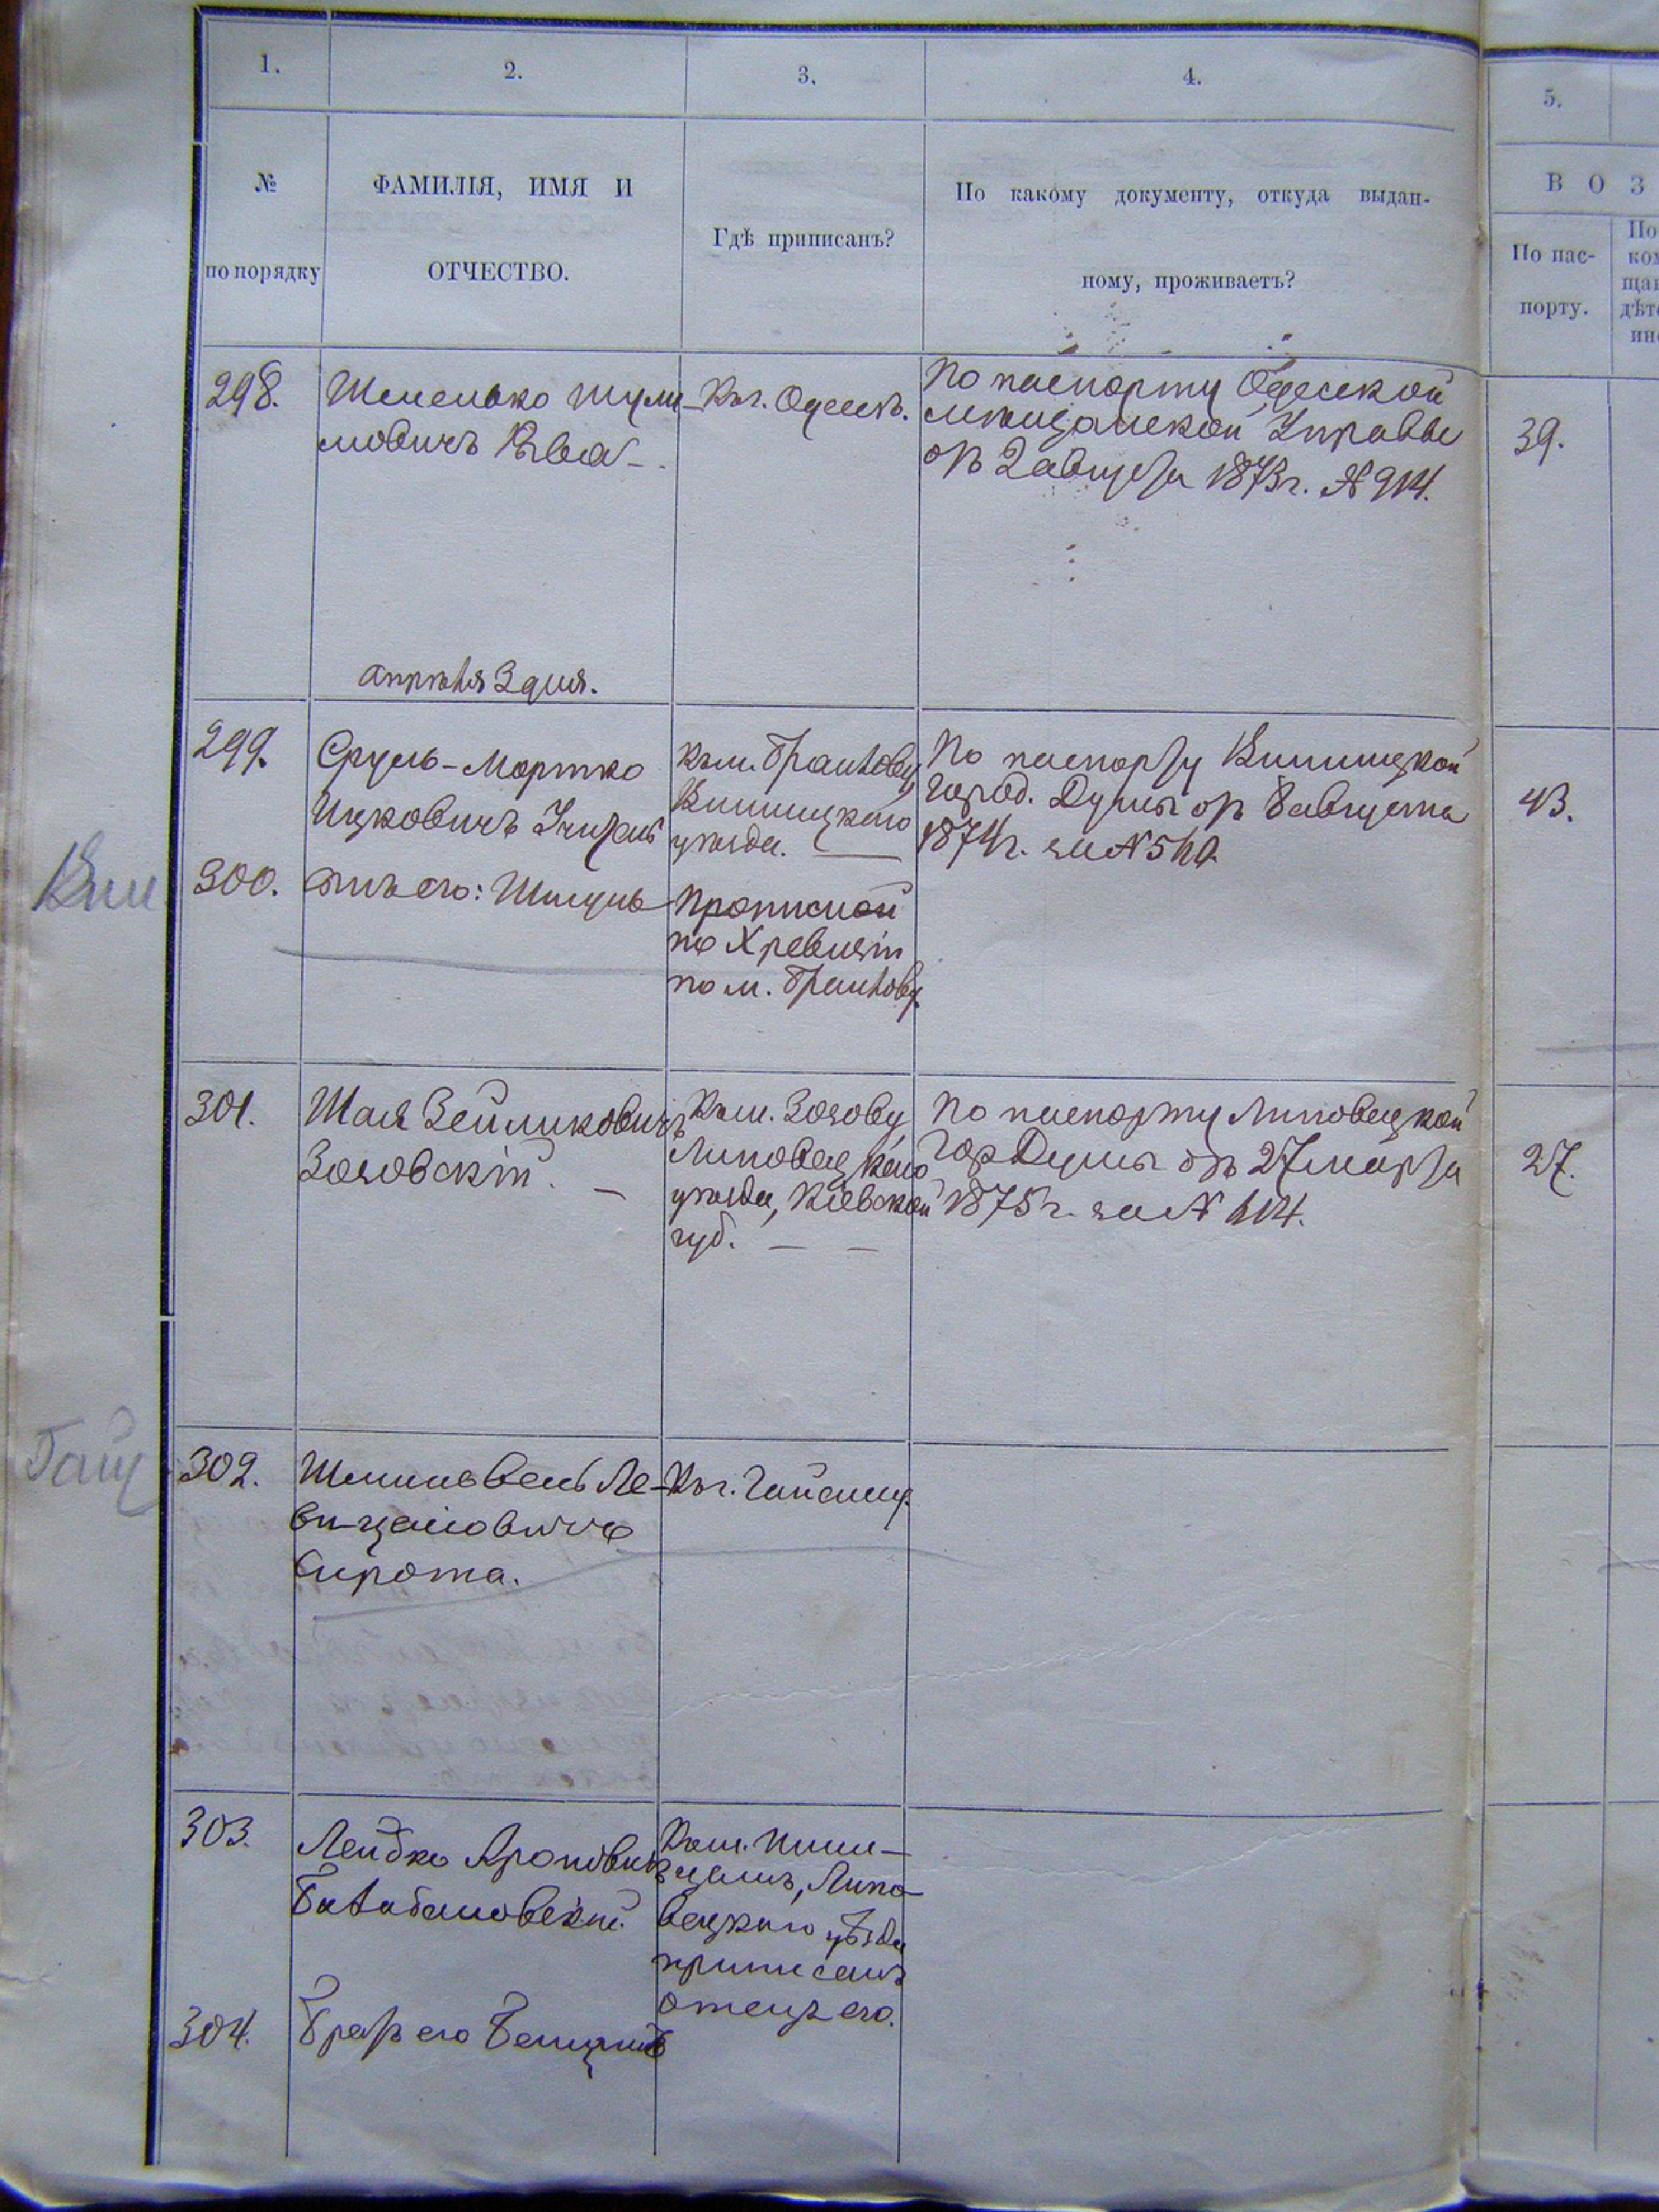 1.
2.
3.
4.
5.
№
по порядку
ФАМИЛІЯ, ИМЯ И
ОТЧЕСТВО.
Гдѣ приписанъ?
По какому документу, откуда выдан-
ному, проживаетъ?
В О З
По пас-
порту.
298.
мовичъ
Къ г. Одессѣ.
По паспорту Одесской
мѣщанской Управы
отъ 2 августа 1873 г. № 914.
39.
апрѣля 3 дня.
299.
Сруль-Мортко
Ицковичъ
Къ м. Браилову
Винницкаго
уѣзда.
По паспорту Винницкой
Город. Думы отъ 8 августа
1874 г. за №
43.
Вин
300.
его: Шмуль
Прописной
по X ревизіи
по м. Браилову.
301.
Шая Зейликовичъ
Зозовскій.
Къ м. Зозову
Липовецкаго
уѣзда, Кіевской
губ.
По паспорту Липовецкой
Гор Думы отъ 27 марта
1875 г. за № 414.
27.
Гайс
302.
Ле-
ви-Цановичъ
Сирота.
Къ г. Гайсину.
303.
Лейбко Ароновичъ
Балабановскій.
Къ м.
Липо-
вецкаго уѣзда
приписанъ
отецъ его.
304.
Братъ его Бенціонъ